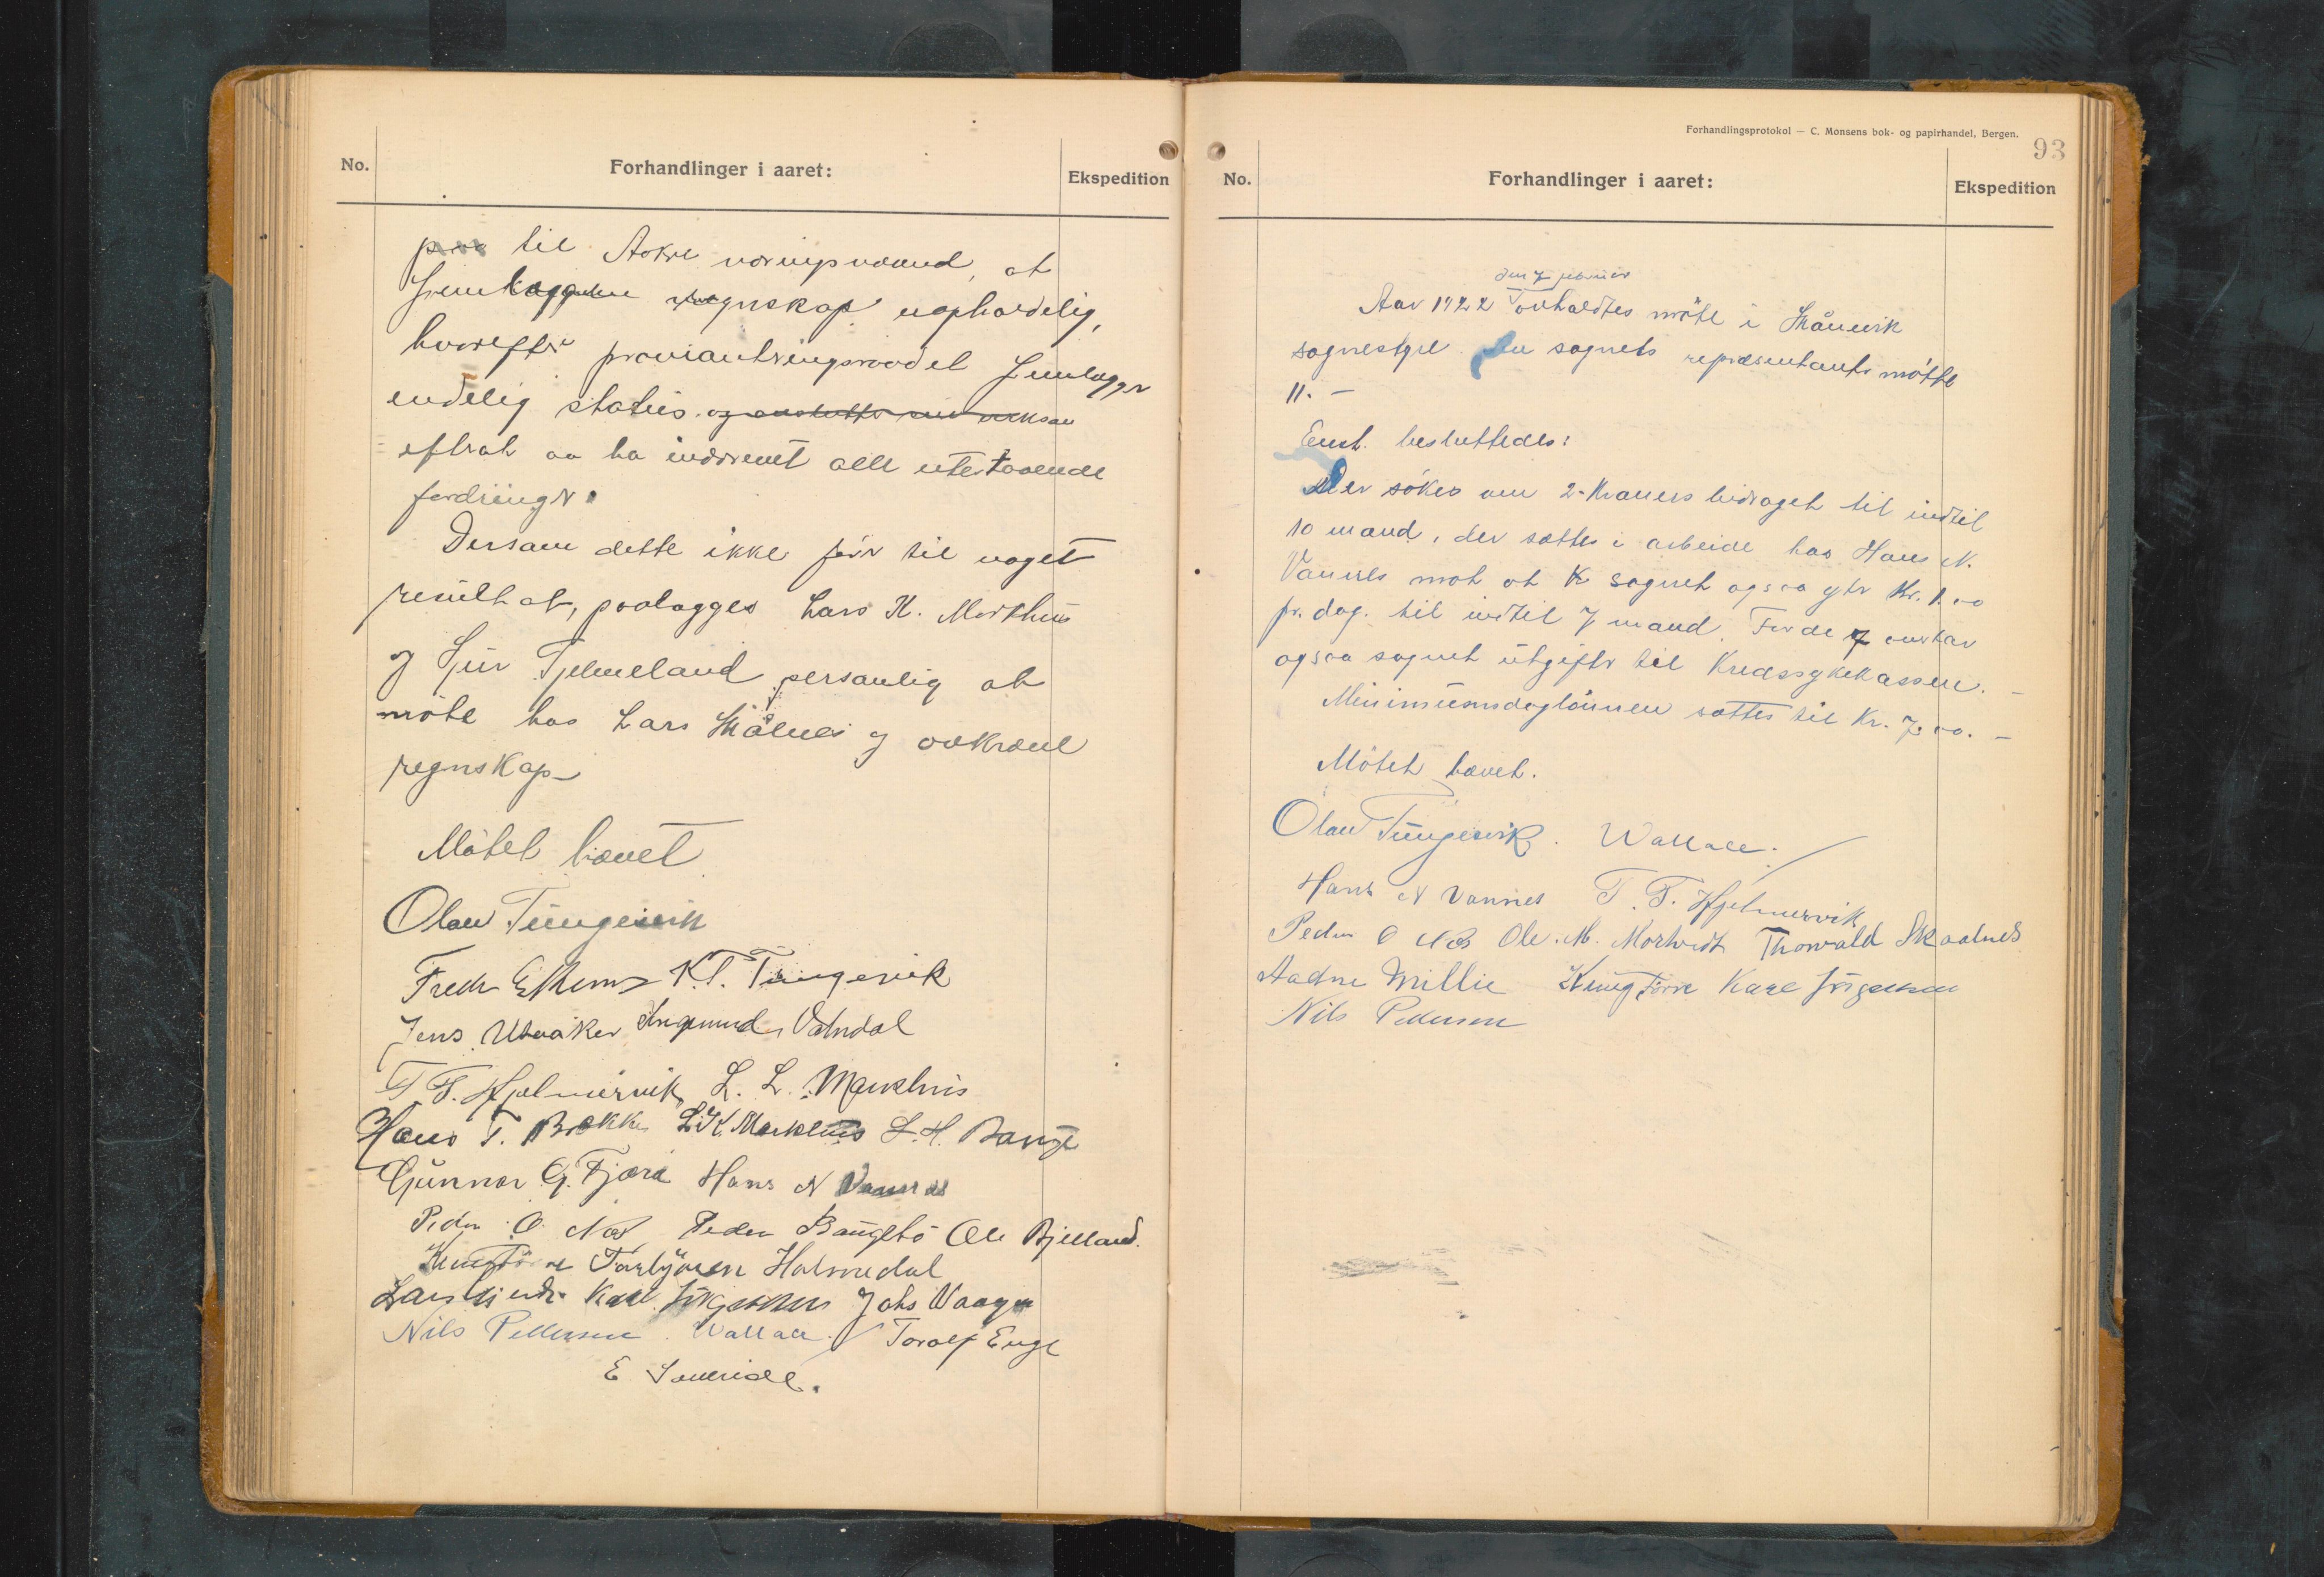 No.
Forhandlinger i aaret:
Ekspedition
til Aakre at
fremlægge regnskap uopholdelig,
hvorefter provianteringsraadet fremlægger
endelig status og
efterat aa ha inddrevet alle utestaaende
fordringer.
Dersom dette ikke fører til noget
resultat, paalægges Lars K. Markhus
og Sjur Tjelmeland personlig at
möte hos Lars Skålnes og avkræve
regnskap
Mötet hævet
Olav Tungesvik
Fredr K. T. Tungesvik
Jens Utaaker Ingmund Valndal
T. T. Hjelmervik L. L. Markhus
Hans T. Brekke L. K. Markhus L. H. Bauge
Gunnar G. Fjæra Hans N Vannes
Peder O. Næs Peder Baugstø Ole Bjelland.
Torbjören Holmedal
Lars Karl Jörgensen Johs Waage
Nils Pedersen Wallace / Toralf Enge
E
Forhandlingsprotokol — C. Monsens bok- og papirhandel, Bergen.
93
No.
Forhandlinger i aaret:
Ekspedition
den 7 februar
Aar 1922 avholdtes möte i Skånevik
sognestyre. Av sognets repræsentanter mötte
11. –
Enst. besluttedes:
Der sökes om 2-Kroners bidraget til indtil
10 mand, der sættes i arbeide hos Hans N.
Vannes mot at sognet ogsaa yter Kr. 1.00
pr. dag. til indtil 7 mand. For de 7 overtar
ogsaa sognet utgifter til Kredssykekassen. –
Minimumsdaglönnen sættes til Kr. 7.00. –
Mötet hævet.
Olav Tungesvik. Wallace. /
Hans N Vannes T. T. Hjelmervik
Peder O Næs Ole. M. Mortvedt Thorvald Skaalnes
Aadne Millie Karl Jörgensen
Nils Pedersen